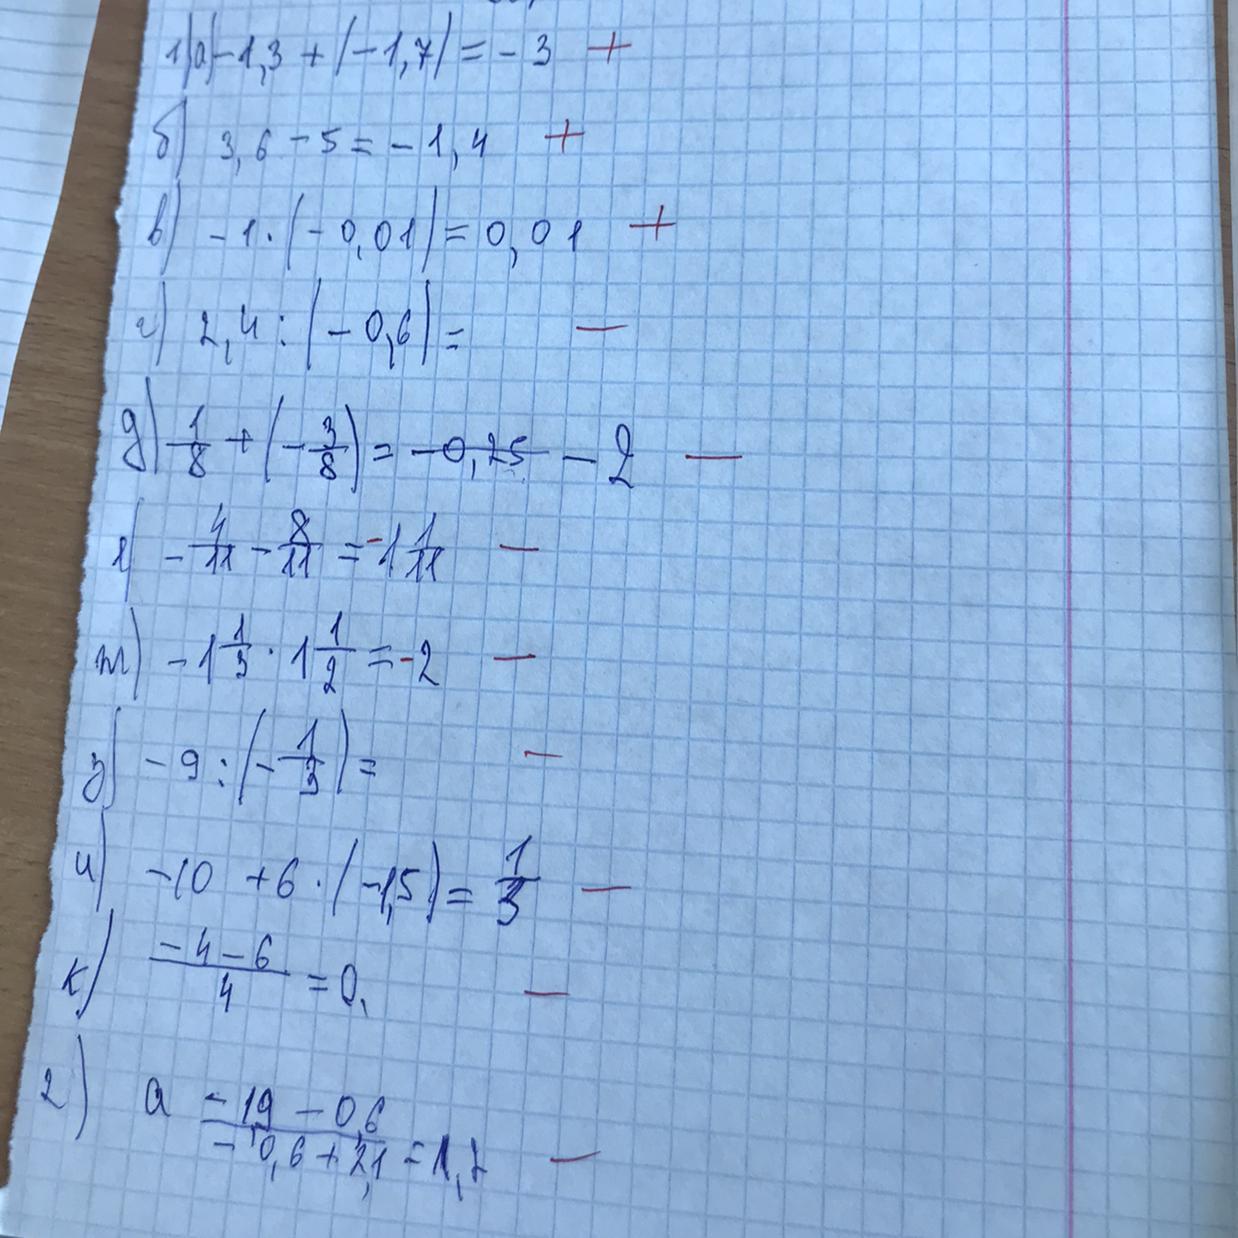 1) а) -1,3 + (-1,7) = -3 +
б) 3,6 - 5 = -1,4 +
в) -1 · (-0,01) = 0,01 +
г) 2,4 : (-0,6) = —
д) 1/8 + (-3/8) = -0,25 -2 —
е) -4/11 - 8/11 = -1 1/11 —
ж) -1 1/3 · 1 1/2 = -2 —
з) -9 : (-1/3) = —
и) -10 + 6 · (-1,5) = 1/3 —
к) (-4-6)/4 = 0, —
2) а (-1,9 - 0,6)/(-0,6 + 2,1) = 1,7 —